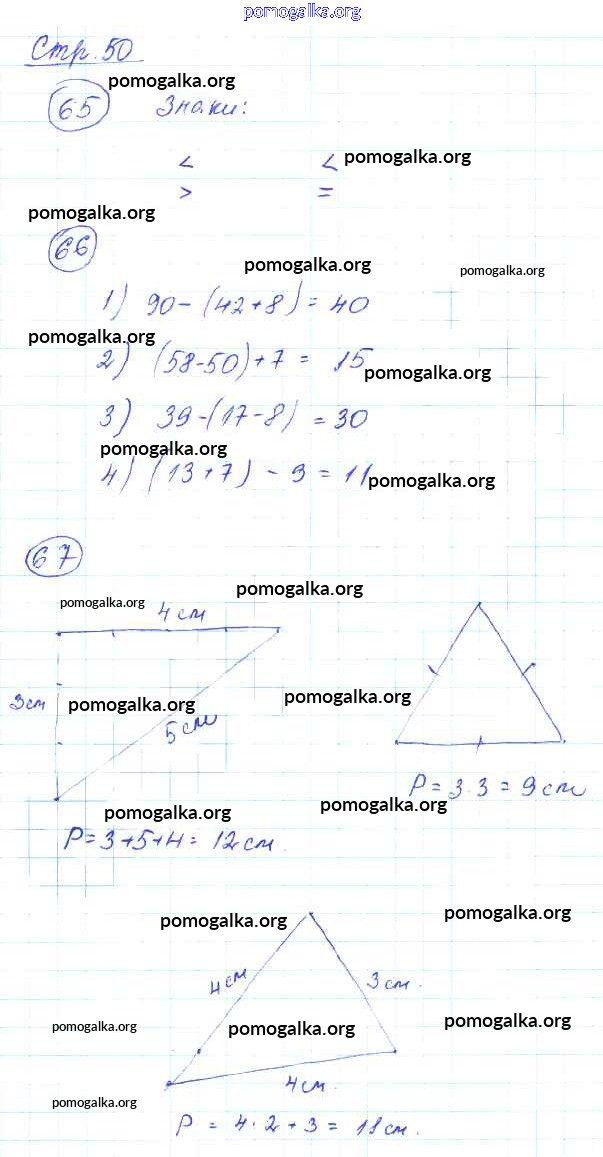 pomogalka.org
Стр. 50
pomogalka.org
65 Знаки:
< < pomogalka.org
> =
pomogalka.org
66
pomogalka.org pomogalka.org
1) 90-(42+8)=40
pomogalka.org
2) (58-50)+7 = 15
pomogalka.org
3) 39-(17-8) = 30
pomogalka.org
4) (13+7) - 9 = 11
pomogalka.org
67
pomogalka.org
pomogalka.org
4 см
3см pomogalka.org pomogalka.org
5 см
P = 3·3 = 9 см
pomogalka.org pomogalka.org
P=3+5+4= 12см.
pomogalka.org pomogalka.org
4 см 3 см.
pomogalka.org pomogalka.org pomogalka.org
4 см.
pomogalka.org
P = 4·2+3 = 11 см.